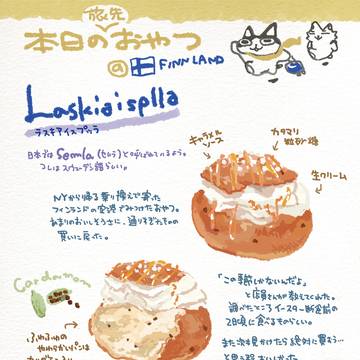 旅先
本日のおやつ
@ FINNLAND
Laskiaispulla
ラスキアイスプッラ
日本では Semla (セムラ) と呼ばれているよう。
コレはスウェーデン語らしい。
キャラメル
ソース
カタマリ
粒砂糖
生クリーム
NYから帰る乗り換えで寄った
フィンランドの空港でみつけたおやつ。
あまりのおいしそうさに、通りすぎたものの
買いに戻った。
Cardamom
「この時期しかないんだよ」
と店員さんが教えてくれた。
調べたところイースター断食前の
2日間に食べるものらしい。
また次も見かけたら絶対に買う…
ふわふわの
やわらかいパンは